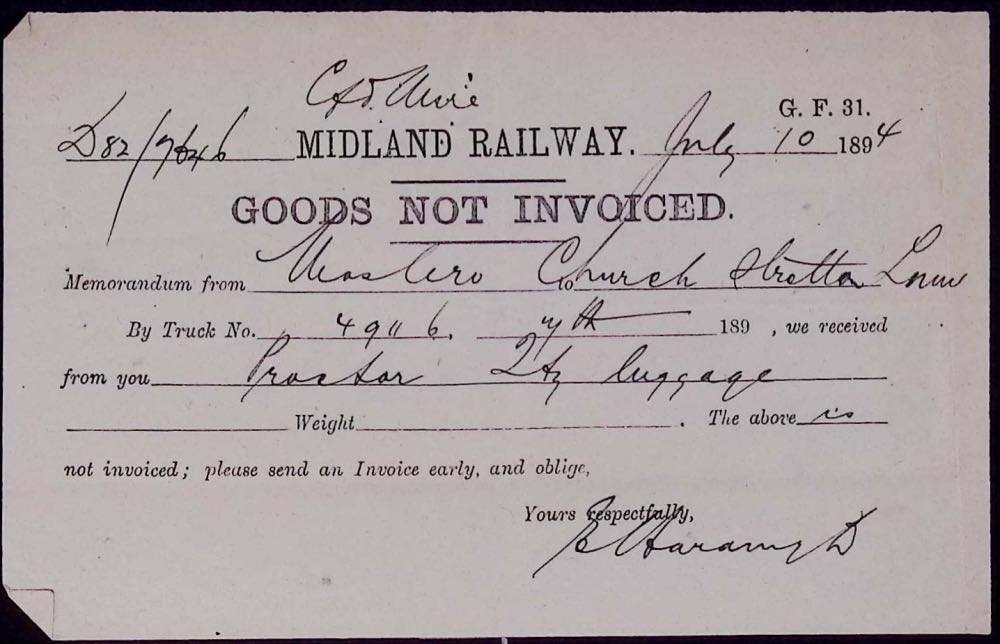 G. F. 31.
D82/7646 MIDLAND RAILWAY. July 10 1894
GOODS NOT INVOICED.
Memorandum from to Church Stretton
By Truck No. 4911 6. 7th 189 , we received
from you Proctor Qty luggage
Weight . The above is
not invoiced; please send an Invoice early, and oblige,
Yours respectfully,